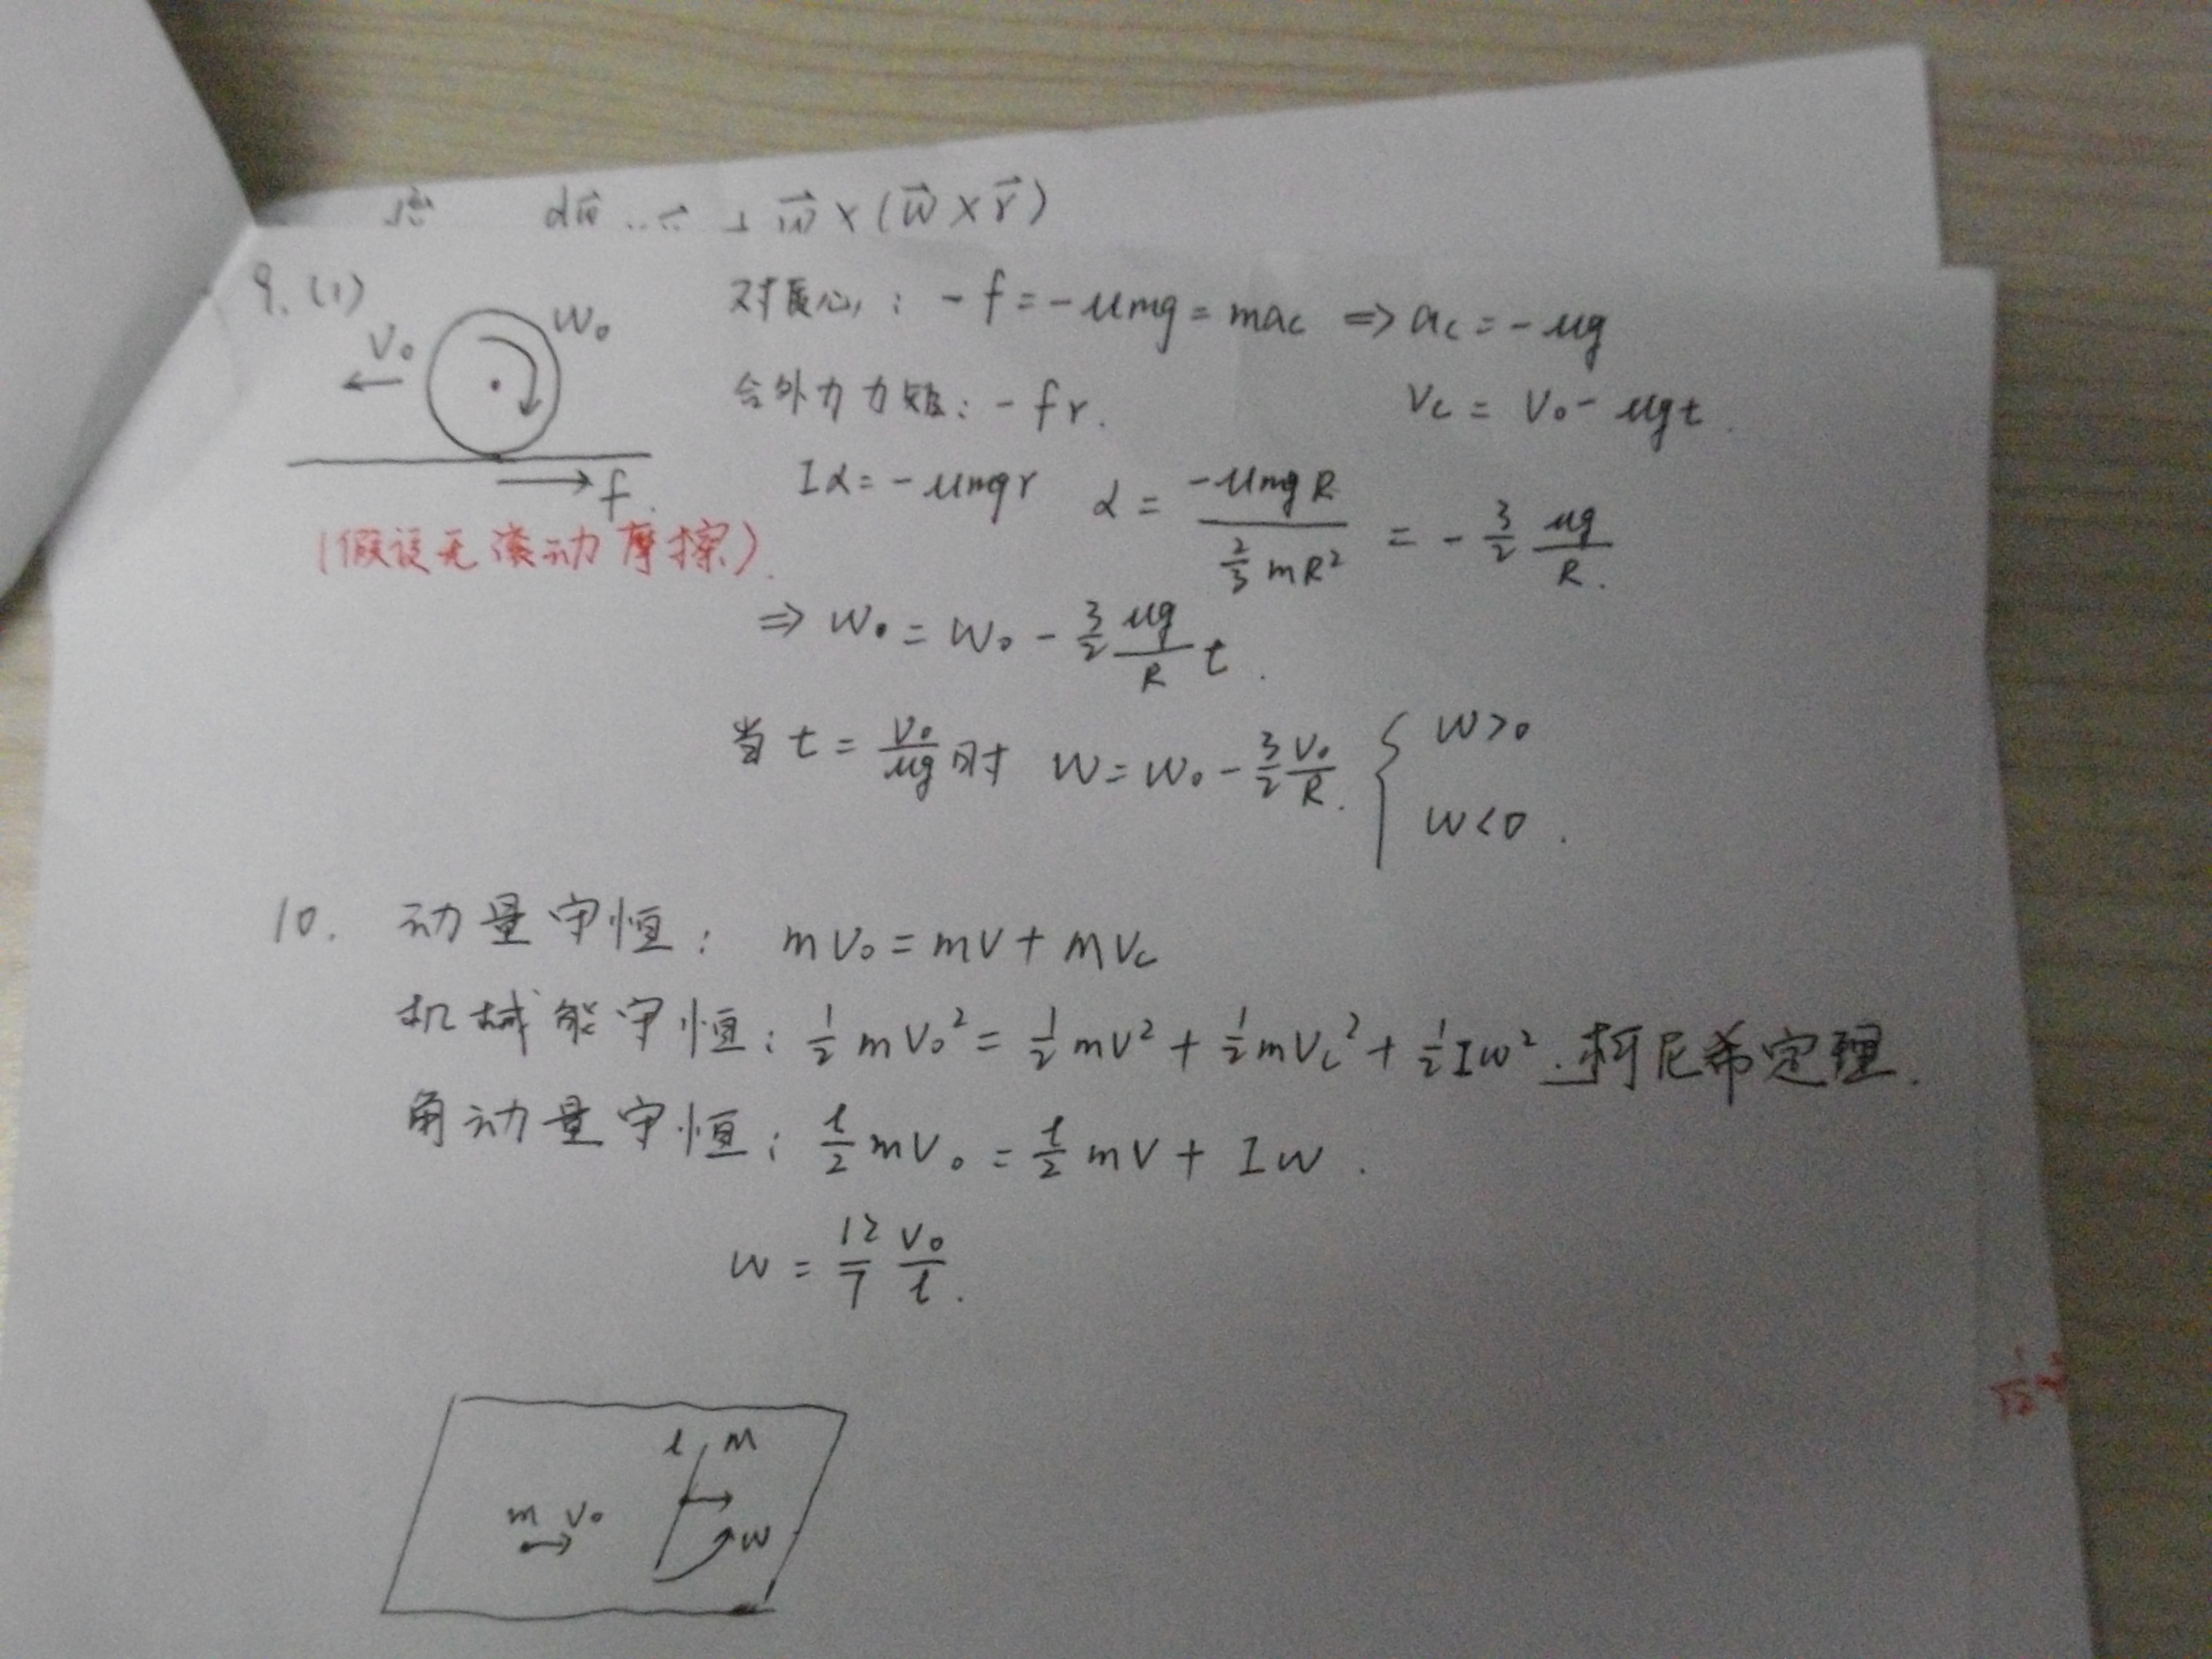 dw⃗ w⃗×(w⃗×r⃗)
9. (1)
V₀ W₀ f.
(假设无滚动摩擦).
对质心: -f=-μmg=mac ⇒ ac=-μg
合外力力矩: -fr. Vc = V₀-μgt.
Iα=-μmgr α = -μmgR / (2/3 mR²) = -3/2 μg/R.
⇒ W₀ = W₀ - 3/2 μg/R t.
当 t = V₀/μg 时 W = W₀ - 3/2 V₀/R. { W>0
W<0.
10. 动量守恒: mV₀ = mV + mVc
机械能守恒: 1/2 mV₀² = 1/2 mV² + 1/2 mVc² + 1/2 Iw². 柯尼希定理.
角动量守恒: l/2 mV₀ = l/2 mV + Iw.
w = 12/7 V₀/l.
l m
m V₀
w